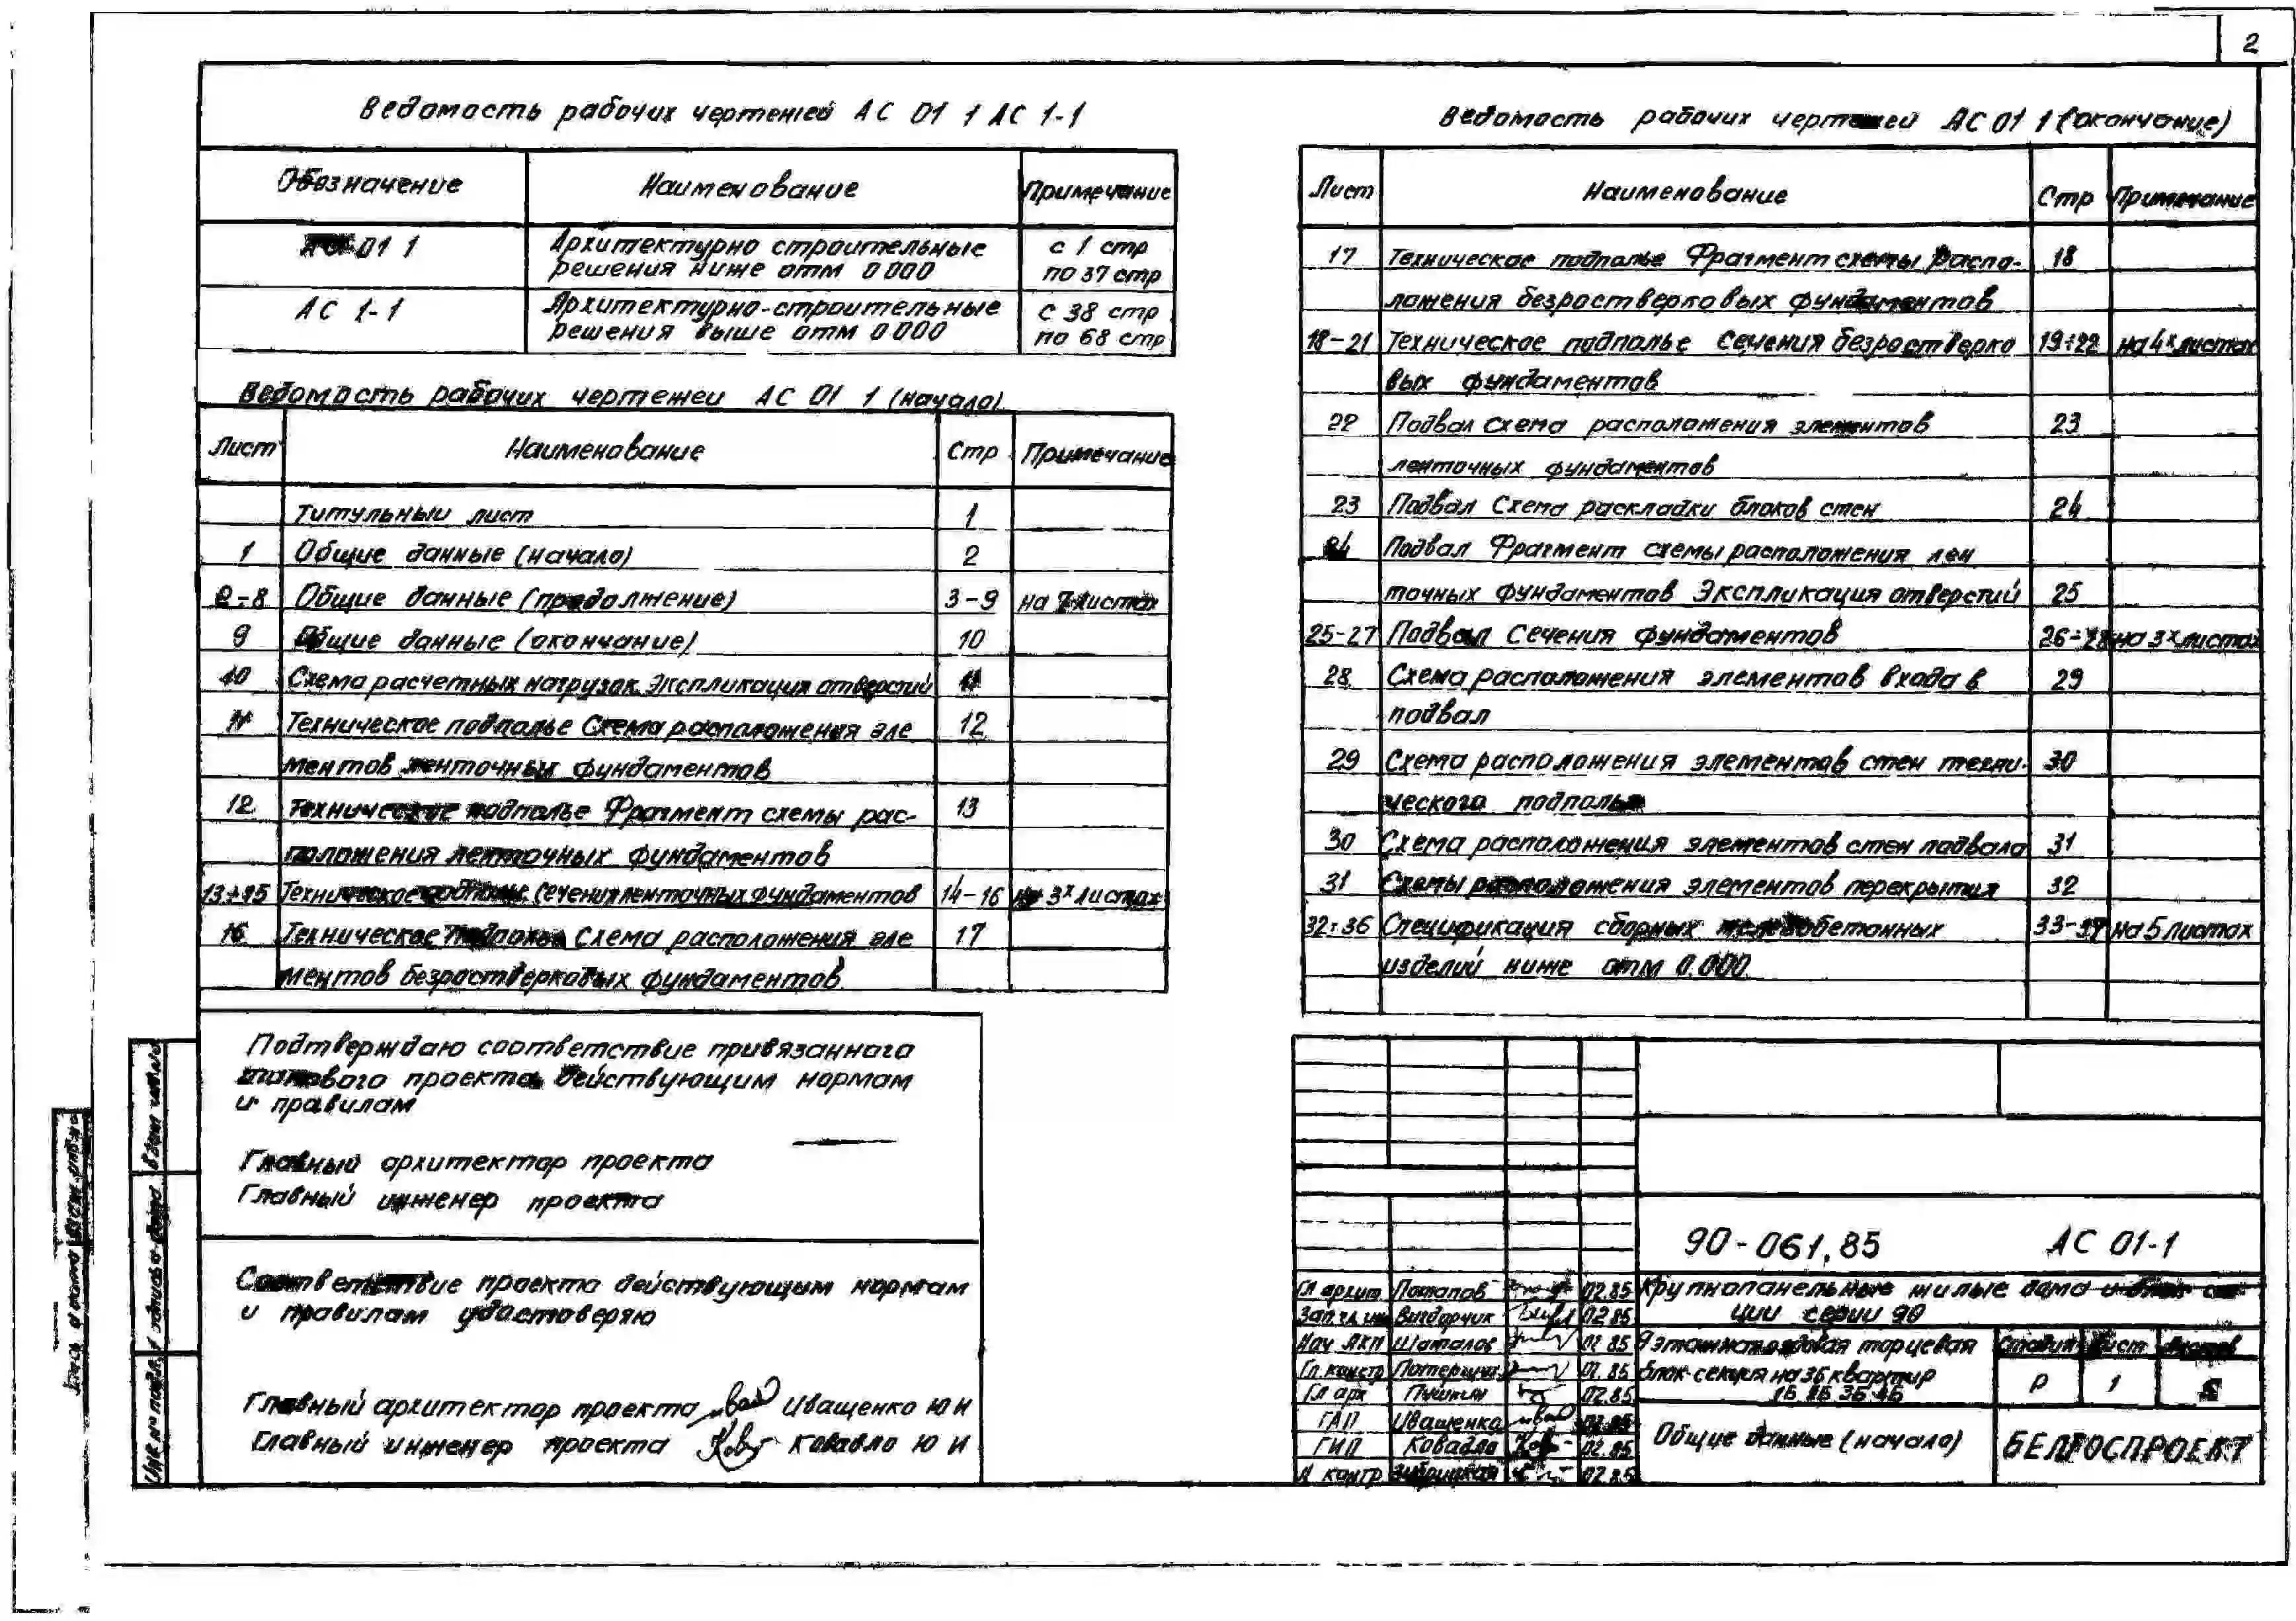 2
Ведомость рабочих чертежей АС 01 1 АС 1-1
Обозначение Наименование Примечание
01 1 Архитектурно строительные с 1 стр
решения ниже отм 0 000 по 37 стр
АС 1-1 Архитектурно-строительные с 38 стр
решения выше отм 0 000 по 68 стр
Ведомость рабочих чертежей АС 01 1 (начало)
Лист Наименование Стр Примечание
Титульный лист 1
1 Общие данные (начало) 2
2-8 Общие данные (продолжение) 3-9 на 7 листах
9 Общие данные (окончание) 10
10 Схема расчетных нагрузок. Экспликация отверстий 11
11 Техническое подполье Схема расположения эле 12
ментов ленточных фундаментов
12 Техническое подполье Фрагмент схемы рас- 13
положения ленточных фундаментов
13÷15 Техническое подполье. Сечения ленточных фундаментов 14-16 на 3х листах
16 Техническое подполье Схема расположения эле 17
ментов безростверковых фундаментов
Ведомость рабочих чертежей АС 01 1 (окончание)
Лист Наименование Стр Примечание
17 Техническое подполье Фрагмент схемы распо- 18
ложения безростверковых фундаментов
18-21 Техническое подполье Сечения безростверко 19÷22 на 4х листах
вых фундаментов
22 Подвал Схема расположения элементов 23
ленточных фундаментов
23 Подвал Схема раскладки блоков стен 24
24 Подвал Фрагмент схемы расположения лен
точных фундаментов Экспликация отверстий 25
25-27 Подвал Сечения фундаментов 26-28 на 3х листах
28 Схема расположения элементов входа в 29
подвал
29 Схема расположения элементов стен техни- 30
ческого подполья
30 Схема расположения элементов стен подвала 31
31 Схемы расположения элементов перекрытия 32
32÷36 Спецификация сборных железобетонных 33-37 на 5 листах
изделий ниже отм 0.000
Подтверждаю соответствие привязанного
типового проекта действующим нормам
и правилам
Главный архитектор проекта
Главный инженер проекта
Соответствие проекта действующим нормам
и правилам удостоверяю
Главный архитектор проекта Иващенко Ю И
Главный инженер проекта Ковадло Ю И
Взам инв №
Подпись и дата
Инв № подл.
90-061.85 АС 01-1
Гл архит Потапов 02.85
Зам гл инж 02 85
Нач АКП Шаталов 02 85
Гл. констр Потерщук 02. 85
Гл арх 02.85
ГАП Иващенко 02.85
ГИП Ковадло 02.85
Н контр 02.85
Крупнопанельные жилые дома и блок сек
ции серии 90
9 этажная рядовая торцевая
блок-секция на 36 квартир
1Б 2Б 3Б 4Б
Стадия Лист Листов
Р 1
Общие данные (начало)
БЕЛГОСПРОЕКТ